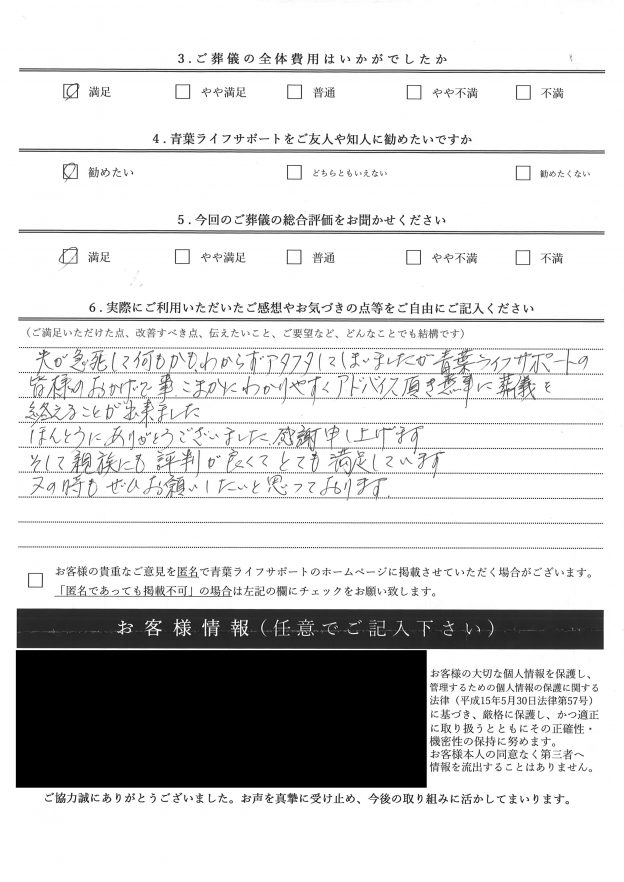 3.ご葬儀の全体費用はいかがでしたか
満足 やや満足 普通 やや不満 不満
4.青葉ライフサポートをご友人や知人に勧めたいですか
勧めたい どちらともいえない 勧めたくない
5.今回のご葬儀の総合評価をお聞かせください
満足 やや満足 普通 やや不満 不満
6.実際にご利用いただいたご感想やお気づきの点等をご自由にご記入ください
(ご満足いただけた点、改善すべき点、伝えたいこと、ご要望など、どんなことでも結構です)
夫が急死して何もかもわからずアタフタしてしまいましたが青葉ライフサポートの
皆様のおかげで事こまかにわかりやすくアドバイス頂き無事に葬儀を
終えることが出来ました
ほんとうにありがとうございました、感謝申し上げます
そして親族にも評判が良くてとても満足しています
又の時もぜひお願いしたいと思っております。
お客様の貴重なご意見を匿名で青葉ライフサポートのホームページに掲載させていただく場合がございます。
「匿名であっても掲載不可」の場合は左記の欄にチェックをお願い致します。
お客様情報(任意でご記入下さい)
お客様の大切な個人情報を保護し、
管理するための個人情報の保護に関する
法律（平成15年5月30日法律第57号）
に基づき、厳格に保護し、かつ適正
に取り扱うとともにその正確性・
機密性の保持に努めます。
お客様本人の同意なく第三者へ
情報を流出することはありません。
ご協力誠にありがとうございました。お声を真摯に受け止め、今後の取り組みに活かしてまいります。